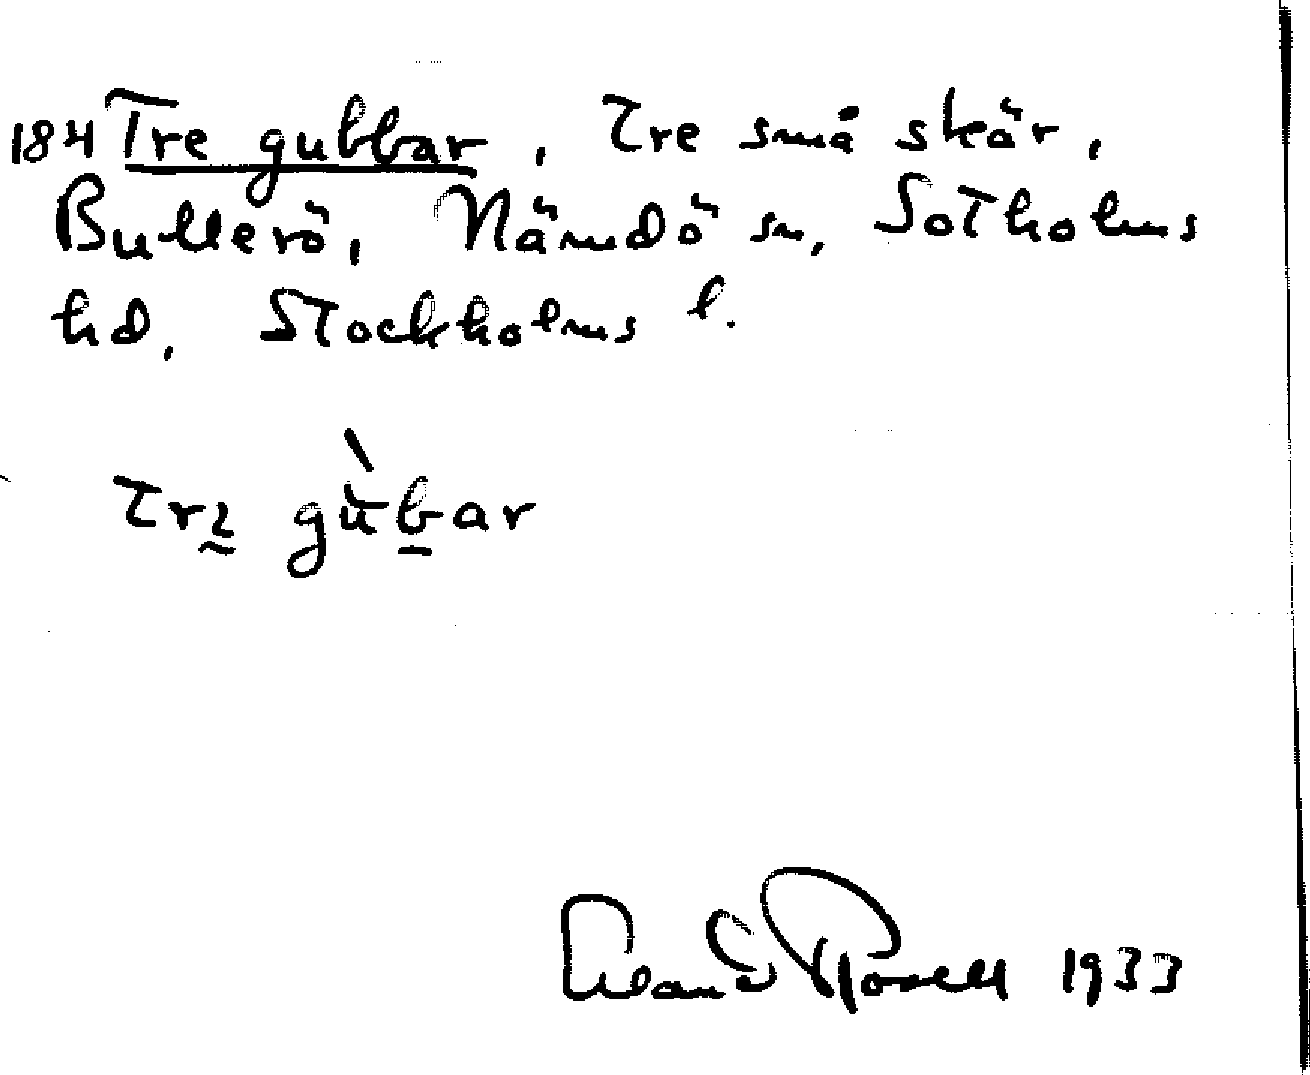 184 Tre gubbar, Tre små skär,
Bullerö, Nämdö sn, Sotholms
hd, Stockholms l.
gùbar
1933